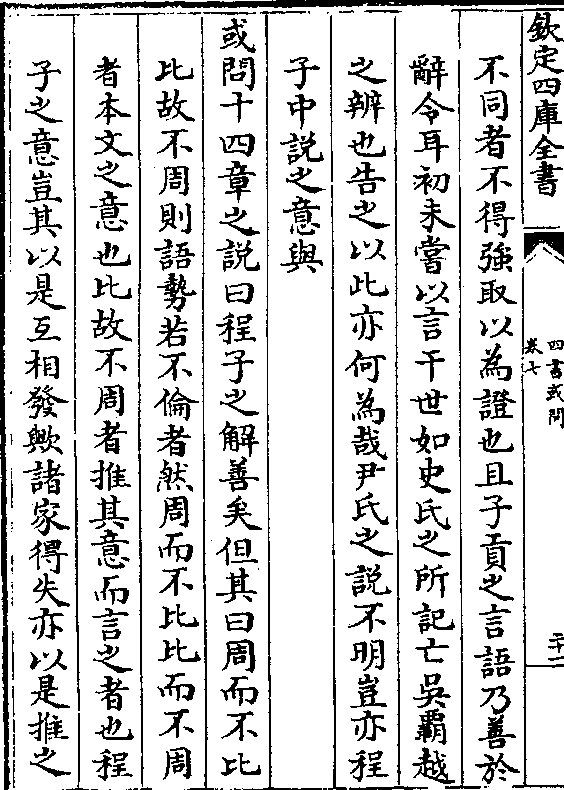 欽定四庫全書
四書或問
卷七
二十二
不同者不得強取以為證也且子貢之言語乃善於
辭令耳初未嘗以言干世如史氏之所記亡吳覇越
之辨也告之以此亦何為哉尹氏之説不明豈亦程
子中説之意與
或問十四章之説曰程子之解善矣但其曰周而不比
比故不周則語勢若不倫者然周而不比比而不周
者本文之意也比故不周者推其意而言之者也程
子之意豈其以是互相發歟諸家得失亦以是推之